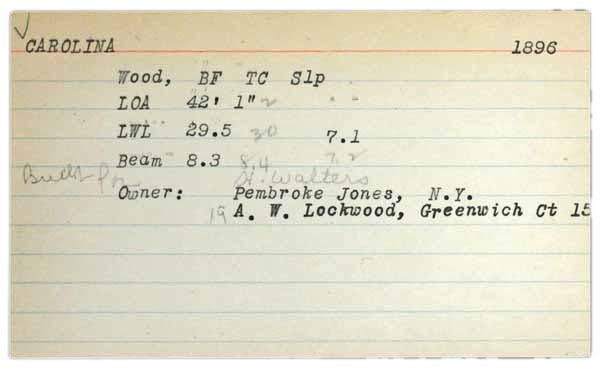 ✓
CAROLINA 1896
Wood, BF TC Slp
LOA 42' 1" 2
LWL 29.5 30 7.1
Beam 8.3 8.4 7.2
Built for H. Walters
Owner: Pembroke Jones, N.Y.
19 A. W. Lockwood, Greenwich Ct 15